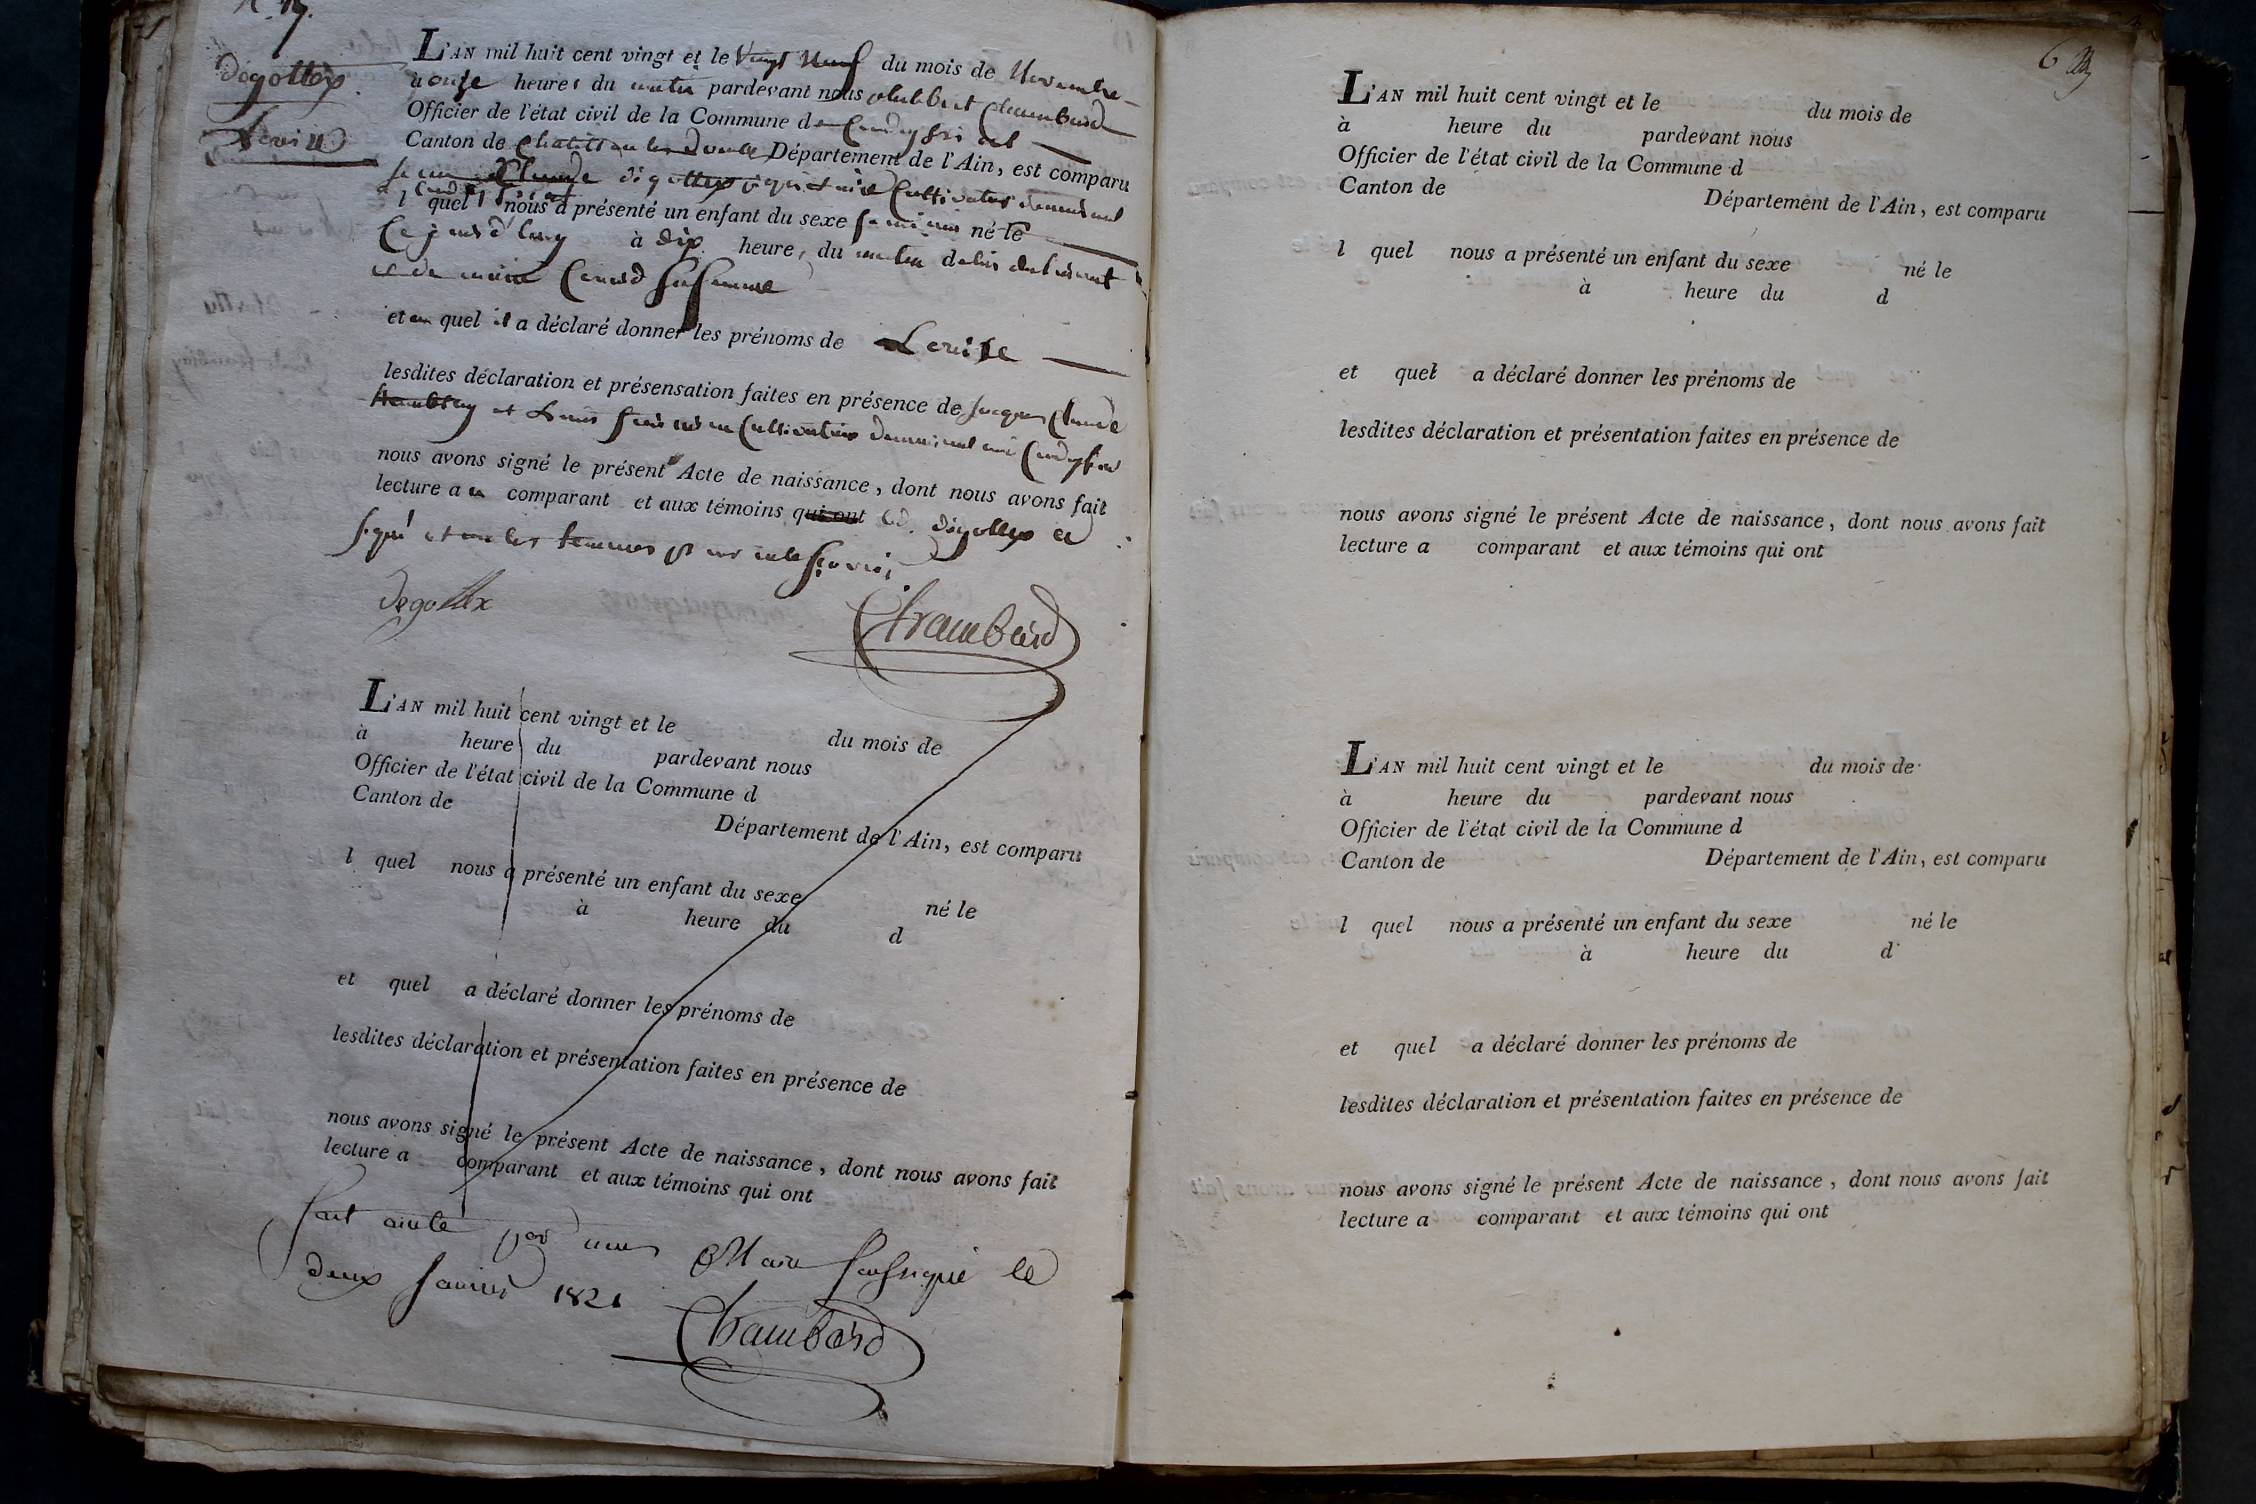 degottex
Louise
L'AN mil huit cent vingt et le vingt neuf du mois de Novembre
à onze heures du matin pardevant nous philibert Chambard
Officier de l'état civil de la Commune de
Canton de Châtillon les Dombes Département de l'Ain, est comparu
Claude degottex Cultivateur
lquel nous a présenté un enfant du sexe feminin né le
Ce jourd'huy à dix heure, du matin de lui
et de marie sa femme
et au quel il a déclaré donner les prénoms de Louise
lesdites déclaration et présensation faites en présence de Jacques Claude
et Louis Cultivateurs
nous avons signé le présent Acte de naissance, dont nous avons fait
lecture au comparant et aux témoins qui ont degottex a
signé et non les temoins
degottex
Chambard
L'AN mil huit cent vingt et le du mois de
à heure du pardevant nous
Officier de l'état civil de la Commune d
Canton de
Département de l'Ain, est comparu
l quel nous a présenté un enfant du sexe né le
à heure du d
et quel a déclaré donner les prénoms de
lesdites déclaration et présentation faites en présence de
nous avons signé le présent Acte de naissance, dont nous avons fait
lecture a comparant et aux témoins qui ont
par nous Maire soussigné le
deux Janvier 1821
Chambard
6
L'AN mil huit cent vingt et le du mois de
à heure du pardevant nous
Officier de l'état civil de la Commune d
Canton de Département de l'Ain, est comparu
l quel nous a présenté un enfant du sexe né le
à heure du d
et quel a déclaré donner les prénoms de
lesdites déclaration et présentation faites en présence de
nous avons signé le présent Acte de naissance, dont nous avons fait
lecture a comparant et aux témoins qui ont
L'AN mil huit cent vingt et le du mois de
à heure du pardevant nous
Officier de l'état civil de la Commune d
Canton de Département de l'Ain, est comparu
l quel nous a présenté un enfant du sexe né le
à heure du d
et quel a déclaré donner les prénoms de
lesdites déclaration et présentation faites en présence de
nous avons signé le présent Acte de naissance, dont nous avons fait
lecture a comparant et aux témoins qui ont